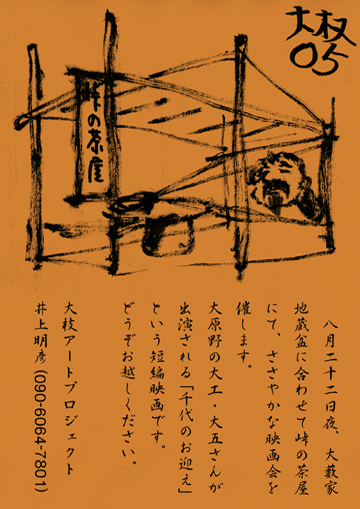 大枝
05
峠の茶屋
八月二十二日夜、大藪家
地蔵盆に合わせて峠の茶屋
にて、ささやかな映画会を
催します。
大原野の大工・大五さんが
出演される「千代のお迎え」
という短編映画です。
どうぞお越しください。
大枝アートプロジェクト
井上明彦(090-6064-7801)